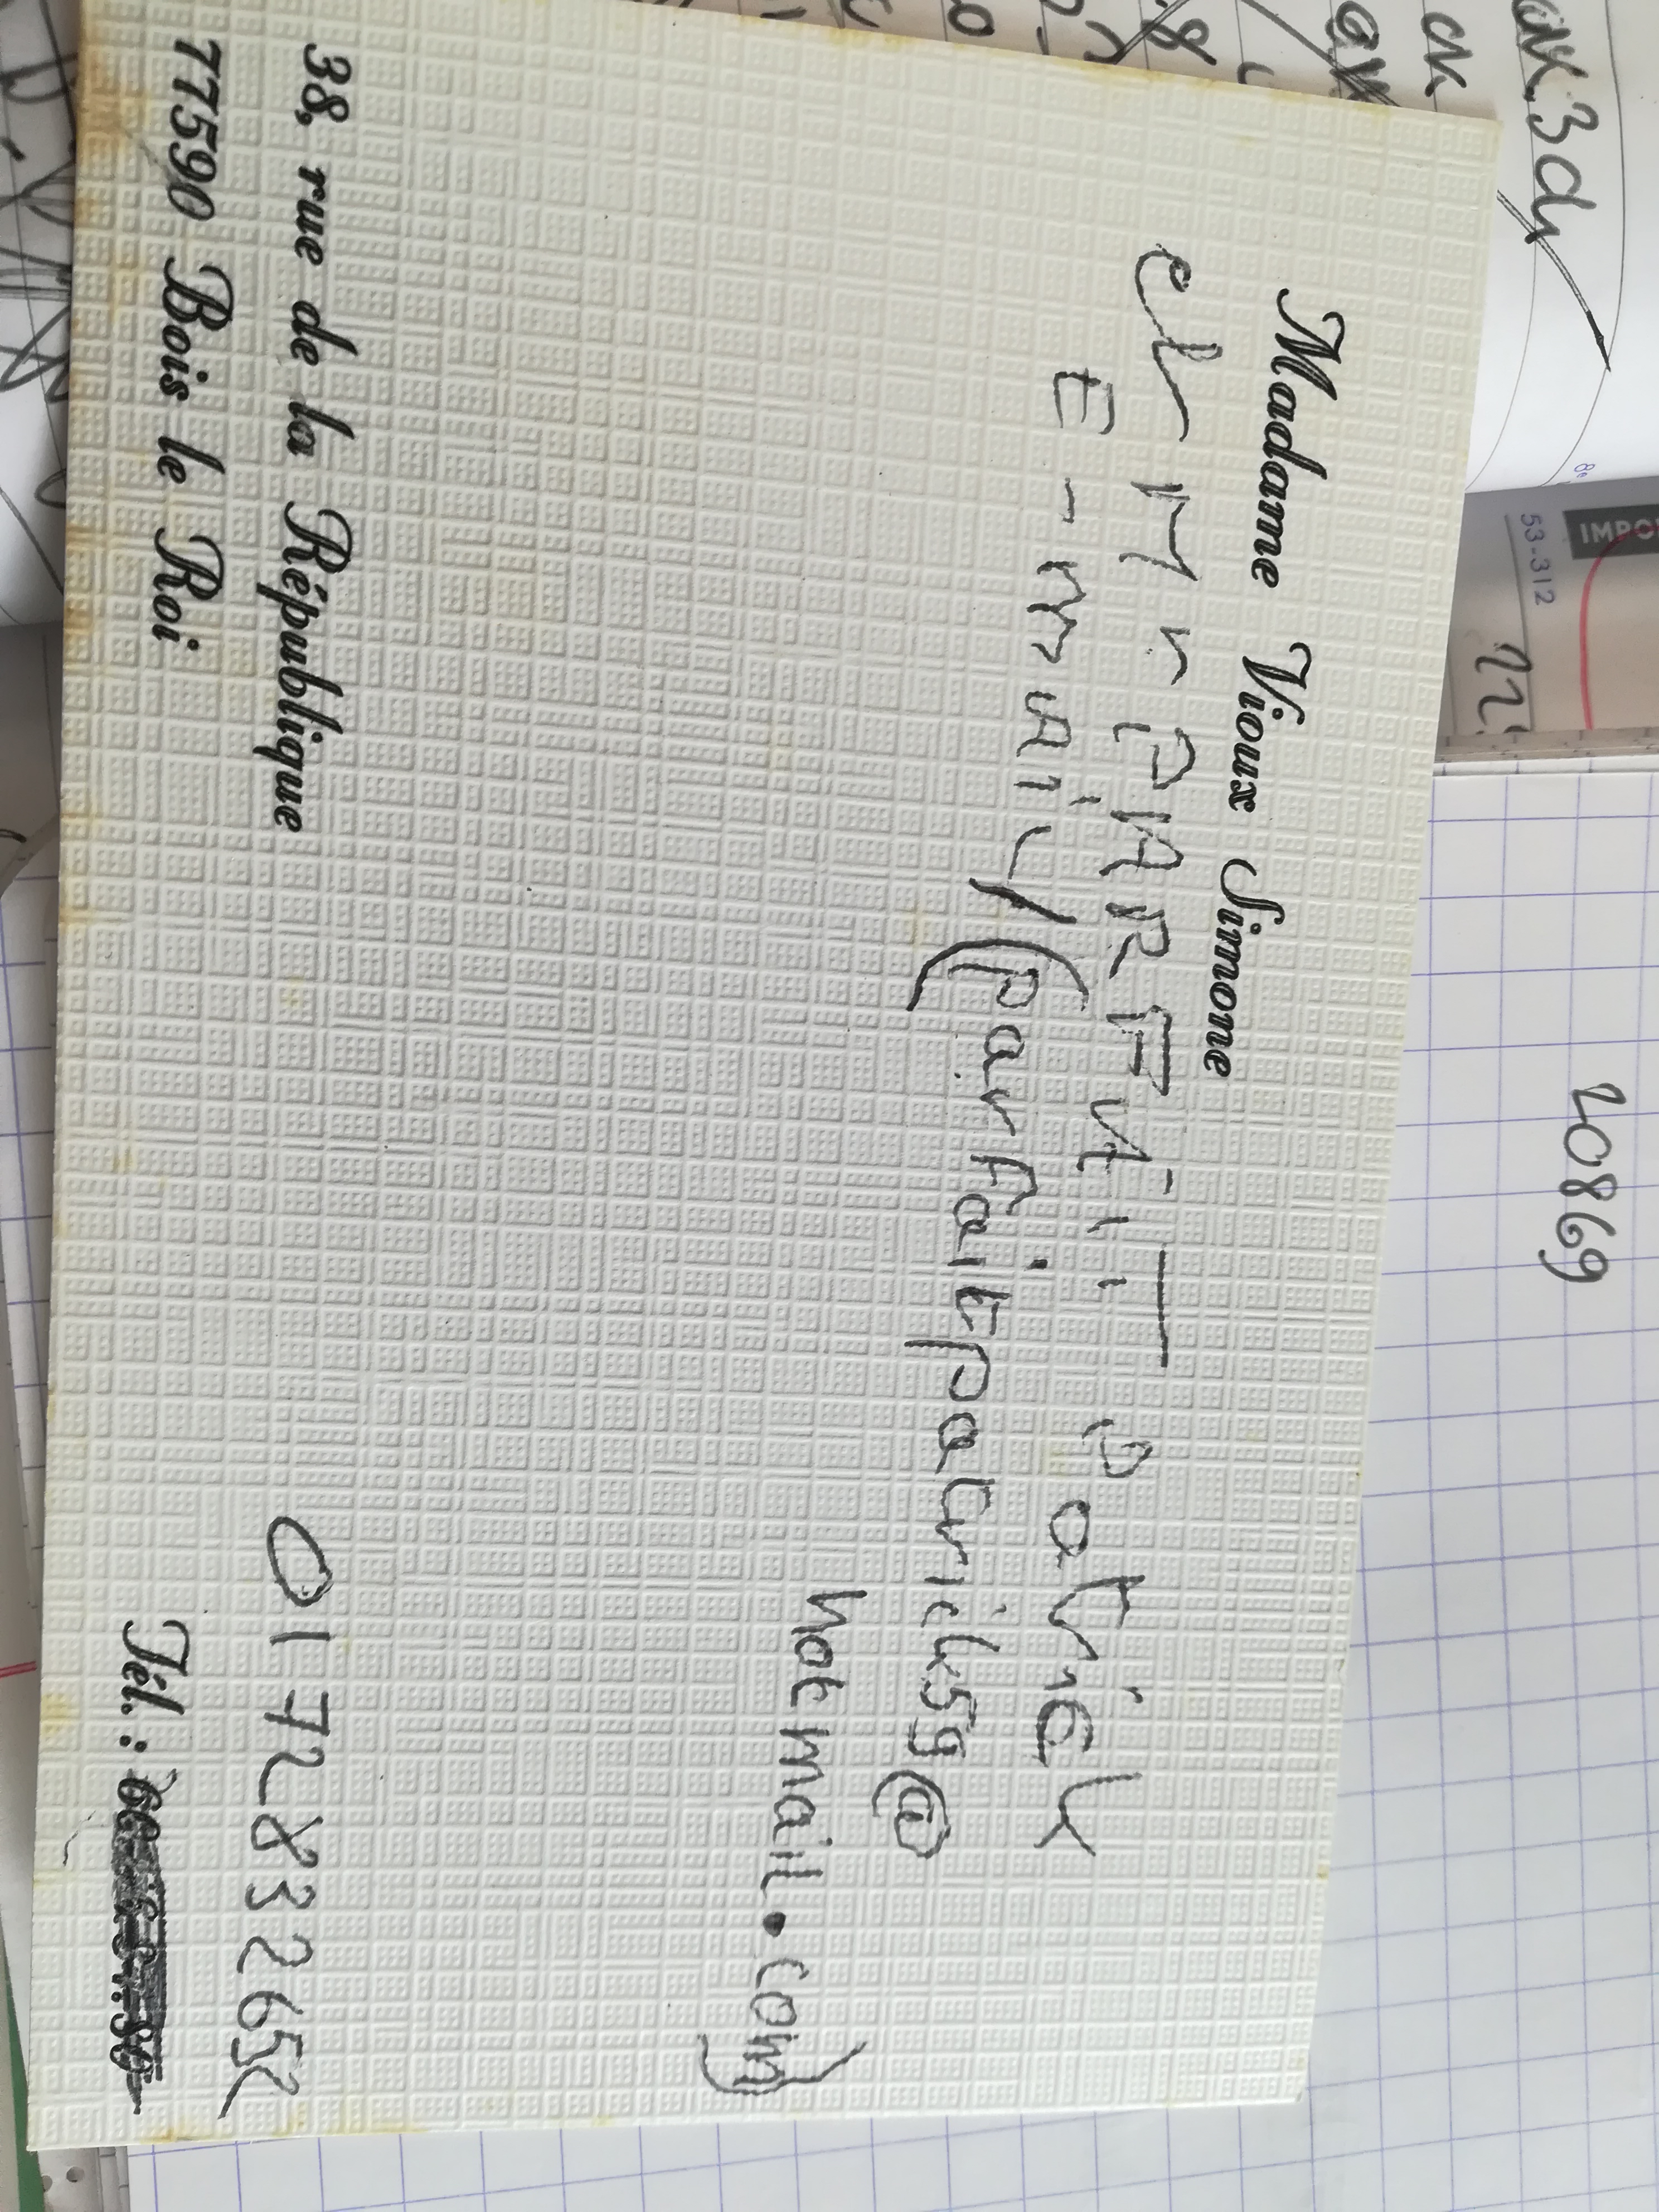 Madame Vioux Simone
et Mr PARFAIT Patrick
E-mail/(parfaitpatrick59@
hotmail.com)
38, rue de la République
77590 Bois le Roi
0172832652
Tél. :
20869
53-312
IMPO